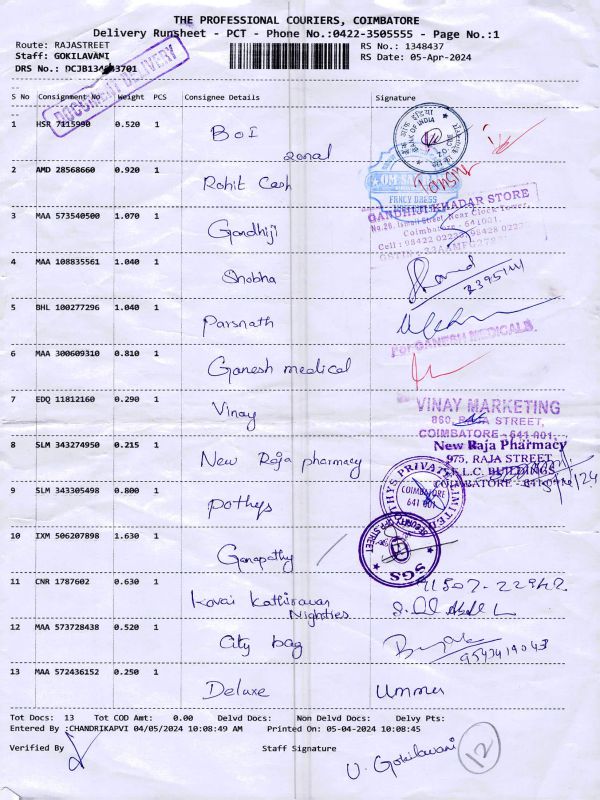 THE PROFESSIONAL COURIERS, COIMBATORE
Delivery Runsheet - PCT - Phone No.:0422-3505555 - Page No.:1
Route: RAJASTREET RS No.: 1348437
Staff: GOKILAVANI RS Date: 05-Apr-2024
DRS No.:
DOCUMENT DELIVERY
S No Consignment No Weight PCS Consignee Details Signature
1 HSR 7115990 0.520 1 BOI zonal
BANK OF INDIA
2 AMD 28568660 0.920 1 Rohit Cash
FANCY DRESS
3 MAA 573540500 1.070 1 Gandhiji
GANDHIJI KHADAR STORE
No.26, Ismail Street, Near Clock Tower,
Coimbatore - 641001.
4 MAA 108835561 1.040 1 Shobha
5 BHL 100277296 1.040 1 Parsnath
6 MAA 300609310 0.810 1 Ganesh medical
For GANESH MEDICALS
7 EDQ 11812160 0.290 1 Vinay
VINAY MARKETING
860, RAJA STREET,
COIMBATORE - 641 001.
8 SLM 343274950 0.215 1 New Raja pharmacy
New Raja Pharmacy
975, RAJA STREET
T.E.L.C. BUILDINGS
COIMBATORE - 641 001
9 SLM 343305498 0.800 1 pothys
THYS PRIVATE LIMITED
COIMBATORE
641 001
10 IXM 506207898 1.630 1 Ganapathy
SGS
11 CNR 1787602 0.630 1 Kovai Kathiravan
Nighties
12 MAA 573728438 0.520 1 City bag
13 MAA 572436152 0.250 1 Deluxe Ummer
Tot Docs: 13 Tot COD Amt: 0.00 Delvd Docs: Non Delvd Docs: Delvy Pts:
Entered By :CHANDRIKAPVI 04/05/2024 10:08:49 AM Printed On: 05-04-2024 10:08:45
Verified By Staff Signature
U. Gokilavani 12